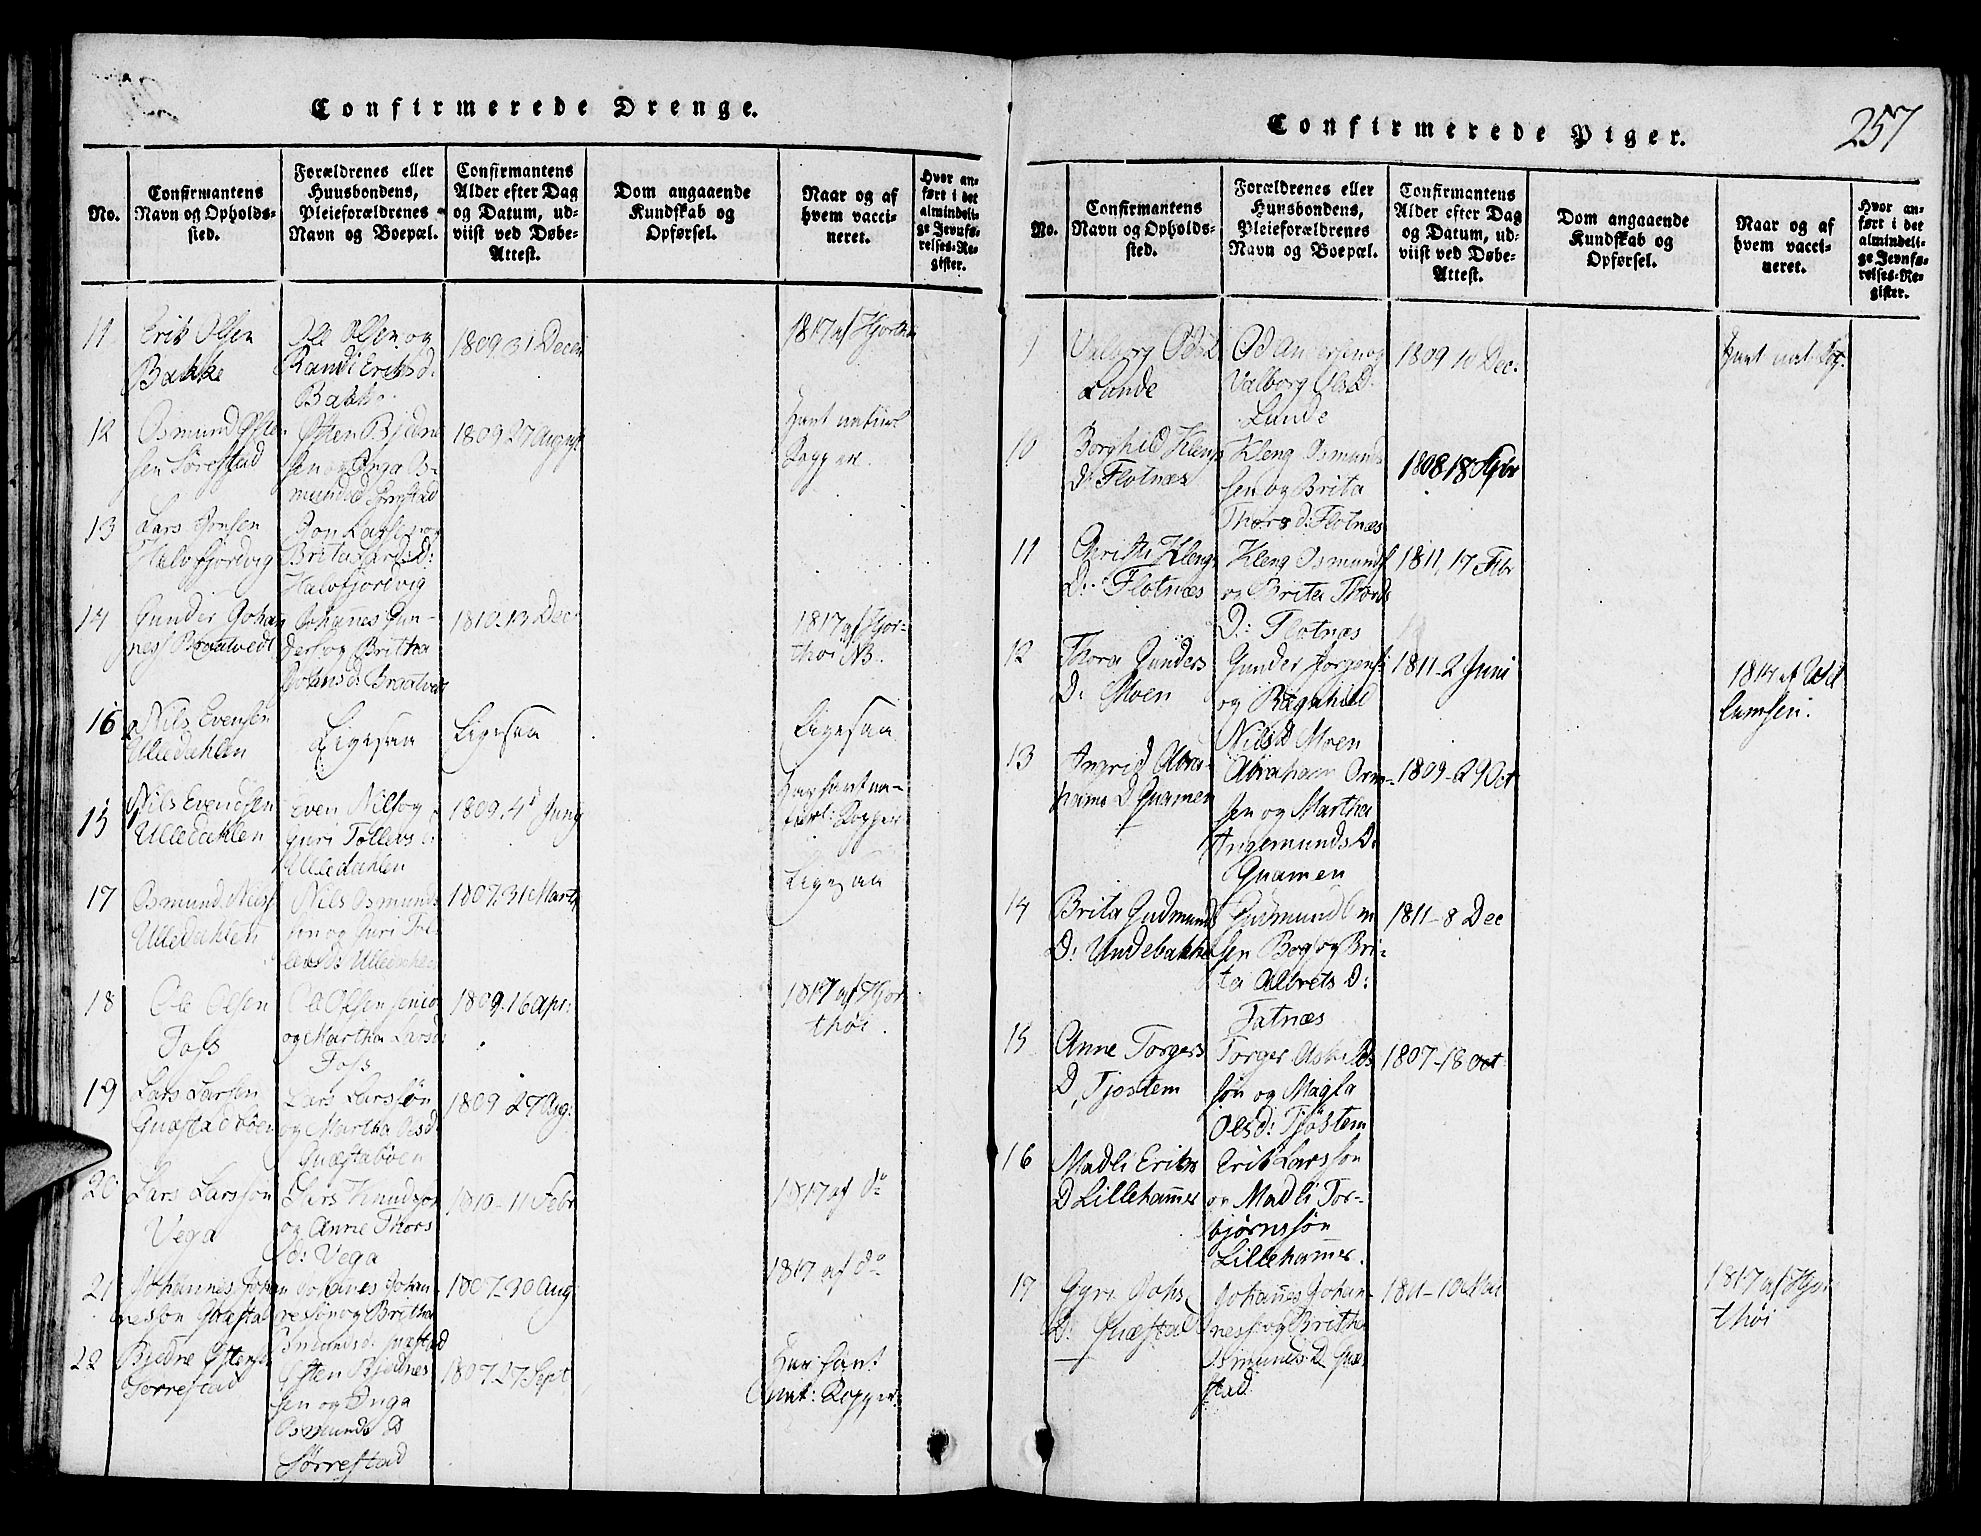 Confirmerede Drenge.
No.
Confirmantens
Navn og Opholds-
sted.
Forældrenes eller
Huusbondens,
Pleieforældrenes
Navn og Boepæl.
Confirmantens
Alder efter Dag
og Datum, ud-
viist ved Døbe-
Attest.
Dom angaaende
Kundskab og
Opførsel.
Naar og af
hvem vacci-
neret.
Hvor an-
ført i det
almindeli-
ge Jevnfø-
relses-Re-
gister.
11
Erik Olsen
Bakke
Ole Olsen og
Randi Eriksd.
Bakke.
1809 31 Decem
1817 af Hjorthøi
12
Osmund Østen
sen Sørestad
Østen Bjedne
sen og Inga
1809 27 Aug
Havt naturl
Kopper.
13
Lars Jonsen
Halvfjordvig
Jon Larsen og
Brita Larsd:
Halvfjordvig
14
Gunder Johan
nes Braatvedt
Johañes Gun-
ders og Britha
Johans d: Braatvedt
1810-13 Dec.
1817 af Hjor-
thøi NB.
16
Nils Evensen
Ulledahlen
Ligesaa
Ligesaa
Ligesaa
15
Nils Evensen
Ulledahlen
Even Nils og
Guri Tollevs
Ulledahlen
1809. 4 Juny
Har havt na-
turl: Kopper
17
Osmund Nils
Ulledahlen
Nils Osmund
sen og Guri Tol
levsd: Ulledahlen
1807. 31 Marts
Ligesaa
18
Ole Olsen
Foss
Ole Olsen
og Martha Larsd
Foss
1809. 16 Apr:
1817 af Hjor
thøi.
19
Lars Larsen
Guæstabøen
Lars Larssøn
og Martha Olsd
Guæstabøen
1809 27 Aug:
20
Lars Larsson
Vega
Knudsøn
og Anne Thors
d: Vega
1810-11 Febr
1817 af d°
21
Johannes Johan
nesson Guæstad
Johanes Johan
nesøn og Britha
Osmunds d. Guæstad
1807-30 Aug
1817 af d°
22
Bjedne Østensen
Sørrestad
Østen Bjednes
sen og Inga
Osmunds D
Sørrestad
1807. 27 Sept
Har havt
nat: Kopper.
257
Confirmerede Piger.
No.
Confirmantens
Navn og Opholds-
sted.
Forældrenes eller
Huusbondens,
Pleieforældrenes
Navn og Boepæl.
Confirmantens
Alder efter Dag
og Datum, ud-
viist ved Døbe-
Attest.
Dom angaaende
Kundskab og
Opførsel.
Naar og af
hvem vacci-
neret.
Hvor an-
ført i det
almindeli-
ge Jevnfø-
relses-Re-
gister.
Valborg Ods D.
Lunde
Od Andersen og
Valborg Ols D.
Lunde
1809 10 Dec:
Havt nat. Kop.
10
Borghild Klengs
D: Flotnæs
Kleng Osmund
sen og Brita
Thors d: Flotnæs
1808 18
11
Christi Klengs
D: Flotnæs
Kleng Osmunds
og Brita Thords
D: Flotnæs
1811, 17 Febr
12
Thora Gunders
D: Moen
Gunder Jorgens
og Ragnhild
Nilsd Moen
1811-2 Juni
1817 af
13
Ingrid Abra-
hams D Quamen
Abraham Orm-
sen og Martha
Ingemunds D:
Quamen
1809-29 Oct
14
Brita Gudmunds
D: Undebakke
Gudmund
sen Bog og Bri-
ta Albrets D:
Fatnæs
1811-8 Dec
15
Anne Torgers
D, Tjostem
Torger Aslaks
søn og Magla
Olsd: Tjøstem
1807-18 Oct
16
Madli Eriks
D Lillehamer
Erik Larsson
og Madli Tor-
bjørnssøn
Lillehamer.
17
Gyri Johs
D: Guæstad
Johañes Johan-
ness og Britha
Osmunds D. Guæ-
stad.
1811-10 Mai
1817 af Hjor
thøi